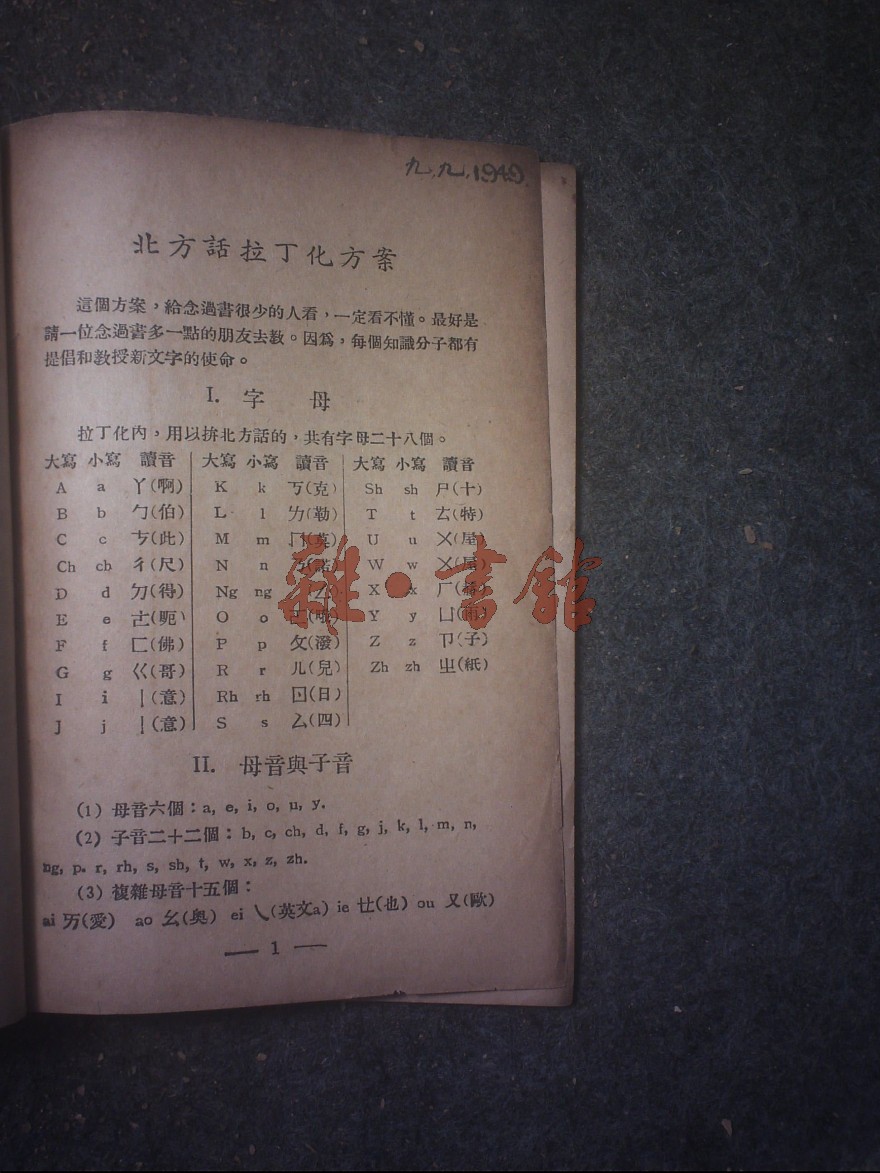 九,九,1949.
北方話拉丁化方案
這個方案，給念過書很少的人看，一定看不懂。最好是
請一位念過書多一點的朋友去教。因爲，每個知識分子都有
提倡和教授新文字的使命。
I. 字 母
拉丁化內，用以拚北方話的，共有字母二十八個。
大寫 小寫 讀音 大寫 小寫 讀音 大寫 小寫 讀音
A a ㄚ(啊) K k ㄎ(克) Sh sh ㄕ(十)
B b ㄅ(伯) L l ㄌ(勒) T t ㄊ(特)
C c ㄘ(此) M m ㄇ(莫) U u ㄨ(屋)
Ch ch ㄔ(尺) N n ㄋ(諾) W w ㄨ(屋)
D d ㄉ(得) Ng ng ㄥ X x ㄏ
E e ㄜ(呃) O o Y y ㄩ
F f ㄈ(佛) P p ㄆ(潑) Z z ㄗ(子)
G g ㄍ(哥) R r ㄦ(兒) Zh zh ㄓ(紙)
I i ㄧ(意) Rh rh ㄖ(日)
J j ㄧ(意) S s ㄙ(四)
II. 母音與子音
(1) 母音六個：a, e, i, o, u, y.
(2) 子音二十二個：b, c, ch, d, f, g, j, k, l, m, n,
ng, p. r, rh, s, sh, t, w, x, z, zh.
(3) 複雜母音十五個：
ai ㄞ(愛) ao ㄠ(奥) ei ㄟ(英文a) ie ㄝ(也) ou ㄡ(歐)
— 1 —
雜·書館